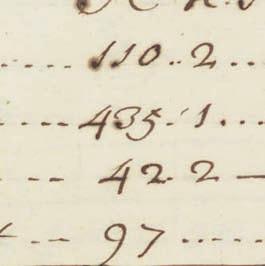 110..2
435.1
42.2
97